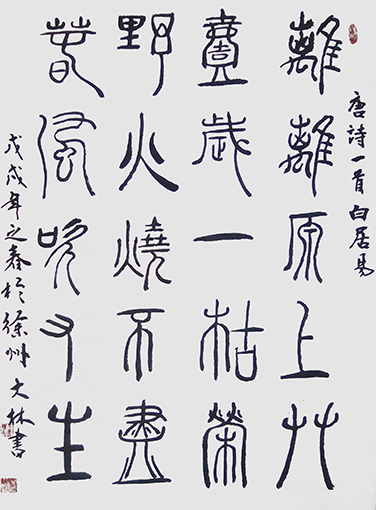 唐詩一首 白居易
離離原上艸
壹歲一枯榮
野火燒不盡
春風吹又生
戊戌年之春於徐州 大林書